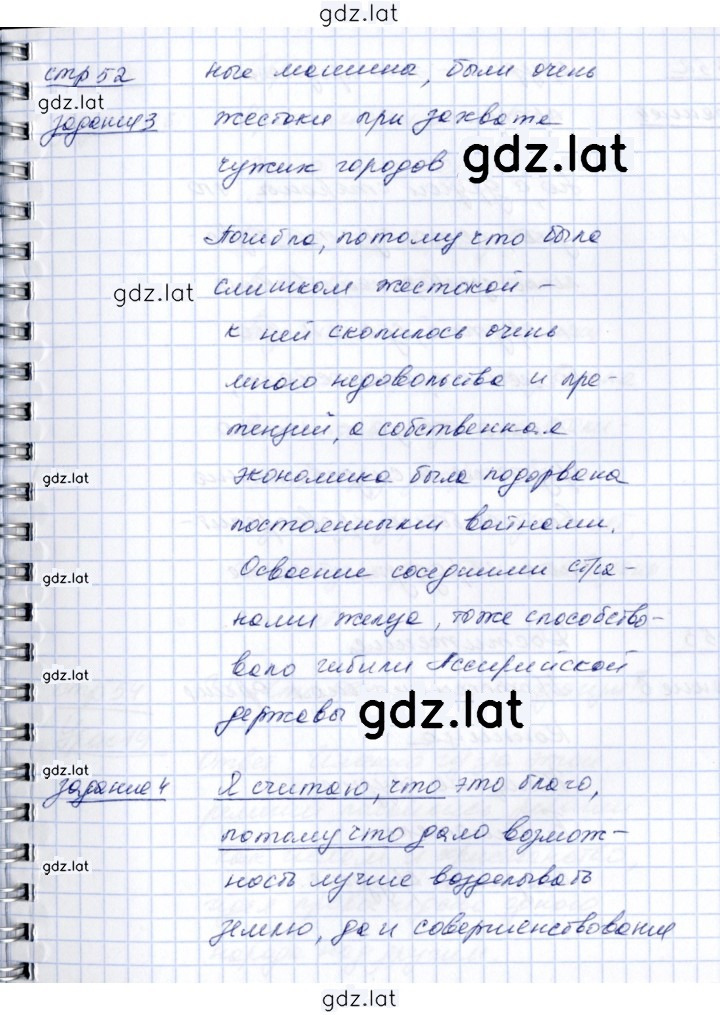 gdz.lat
стр 52 ные машины, были очень
gdz.lat
задание 3 жестоки при захвате
чужих городов gdz.lat
Погибла, потому что была
gdz.lat слишком жестокой –
к ней скопилось очень
много недовольства и пре-
тензий, а собственная
gdz.lat экономика была подорвана
постоянными войнами.
gdz.lat Освоение соседними стра-
нами железа, тоже способство-
gdz.lat вало гибили Ассирийской
державы gdz.lat
задание 4 Я считаю, что это благо,
потому что дало возмож-
gdz.lat ность лучше возделывать
землю, да и совершенствование
gdz.lat
gdz.lat